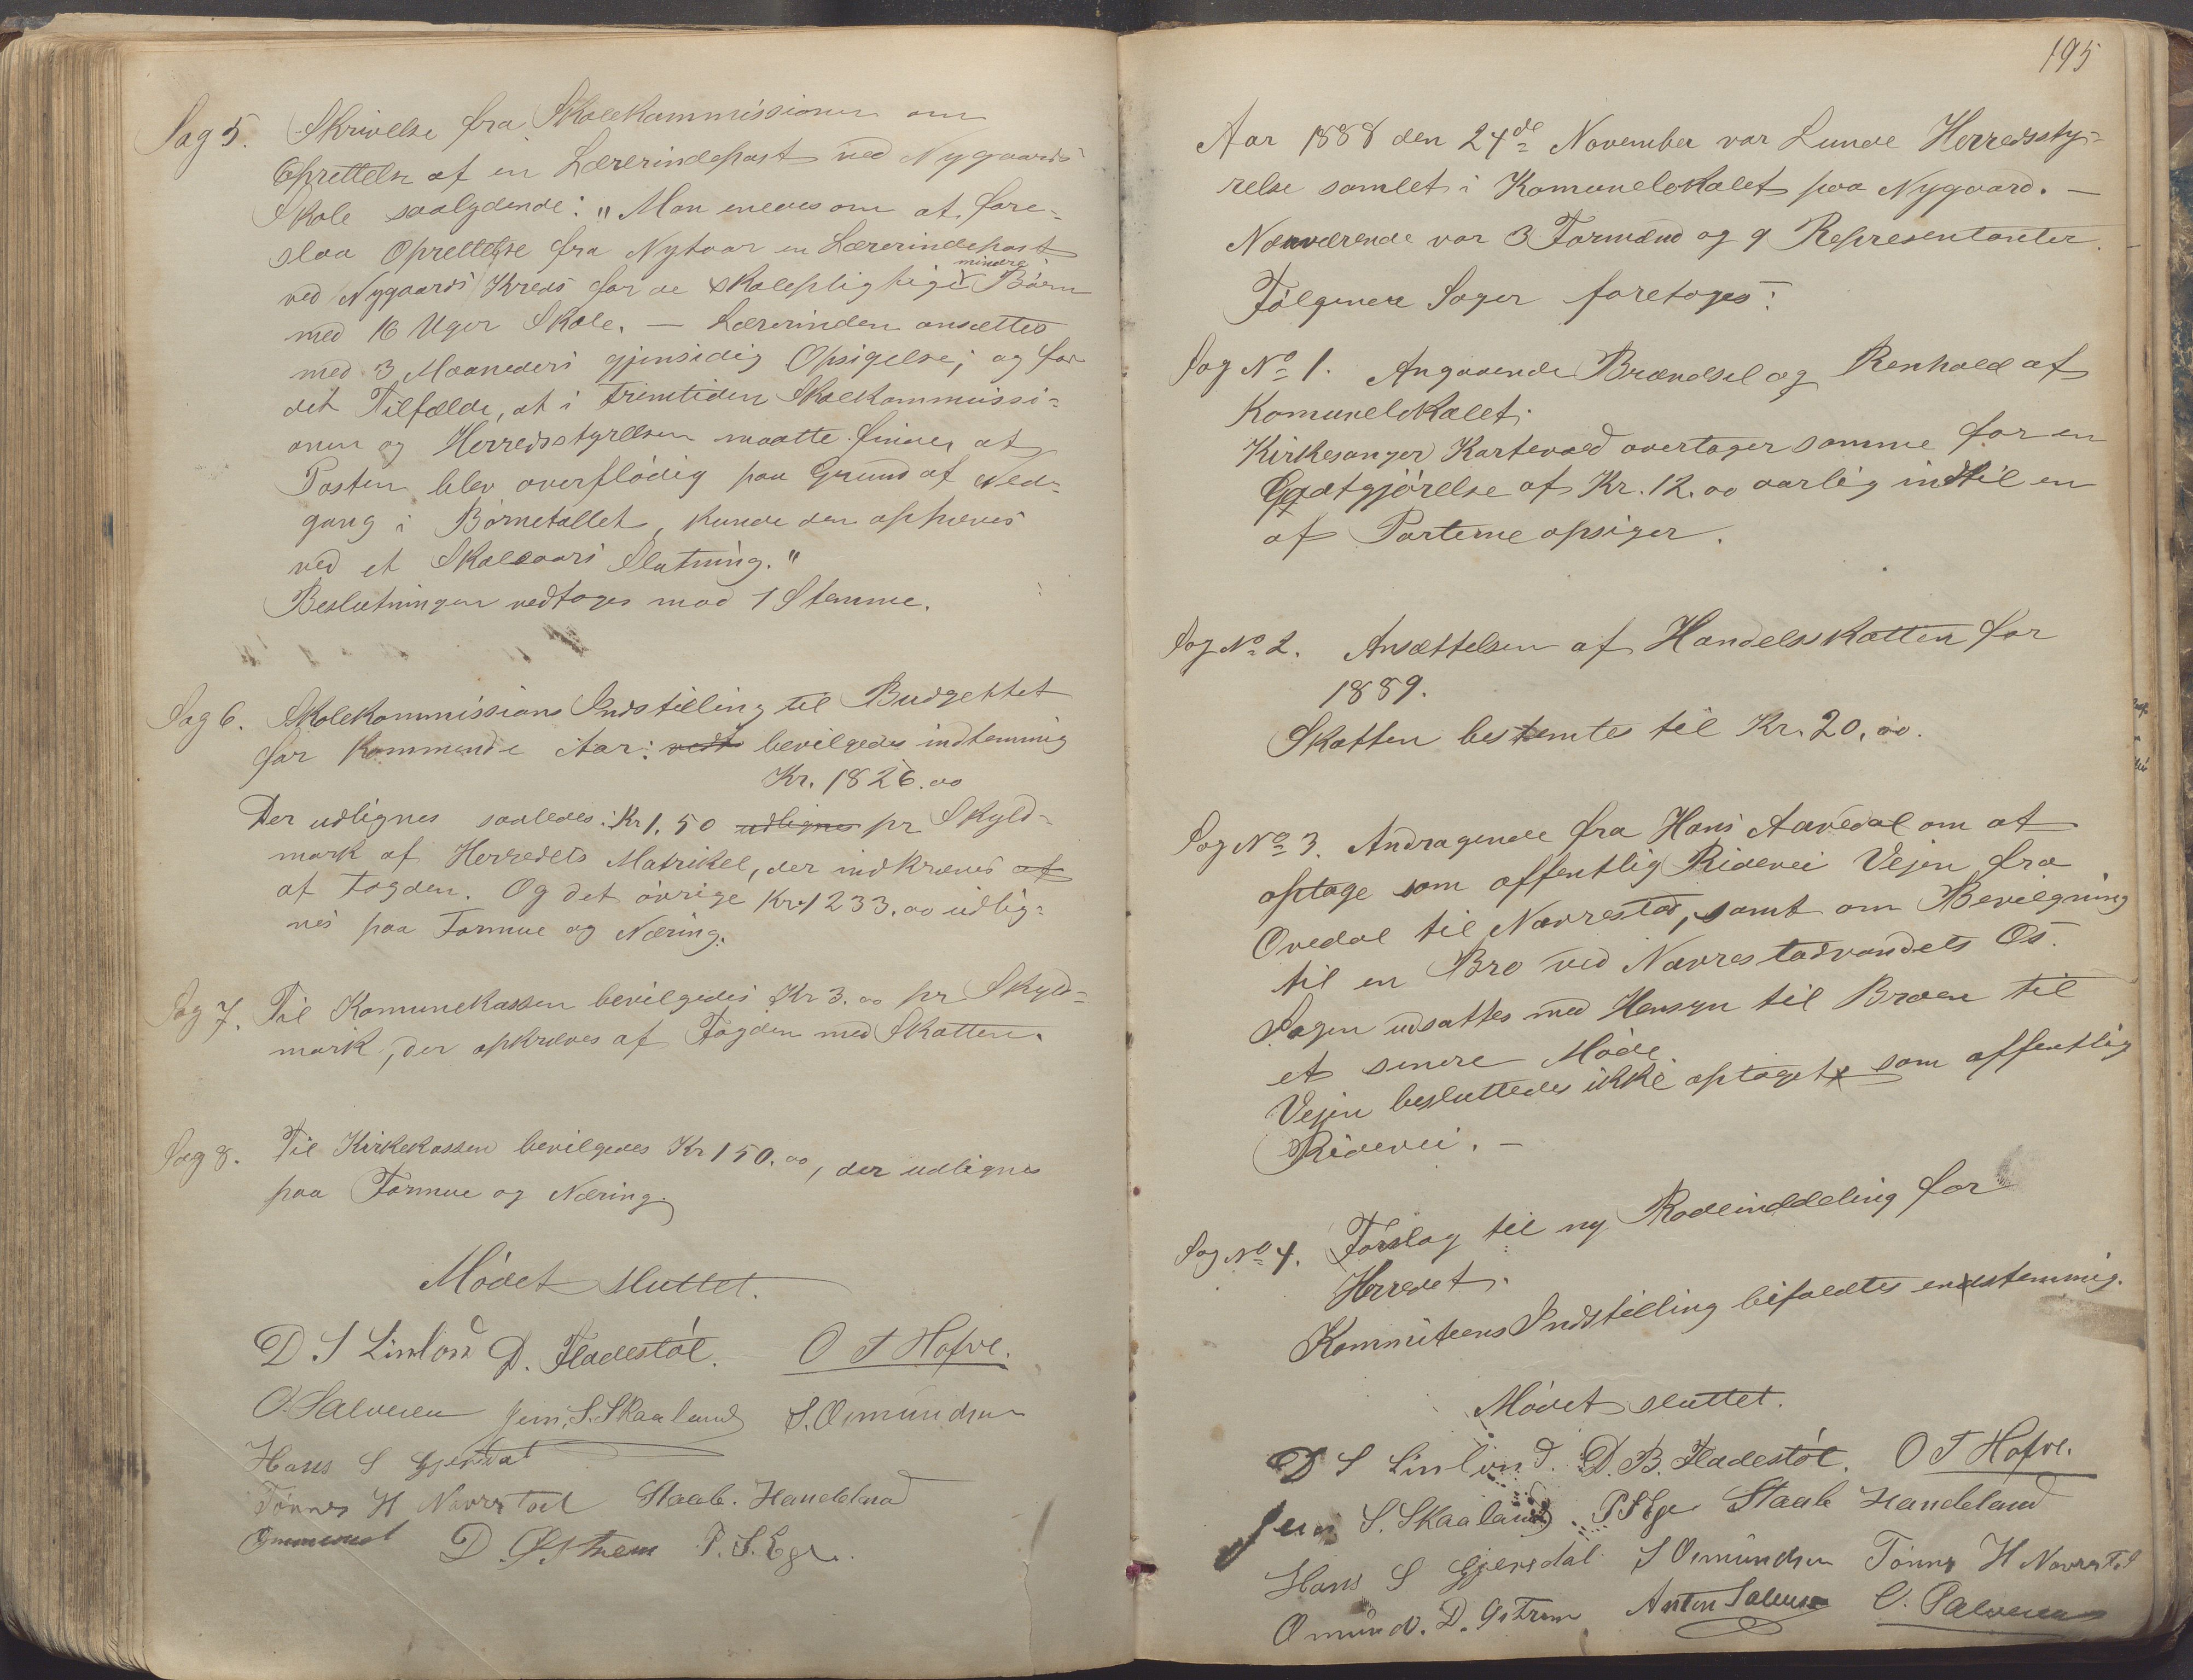 Sag 5. Skrivelse fra Skolekommissionen om
Oprettelse af en Lærerindepost ved Nygaards
Skole saalydende: "Man enedes om at fore-
slaa Oprettelse fra Nytaar en Lærerindepost
mindre
ved Nygaards Kreds for de skolepligtige Børn
med 16 Uger Skole. — Lærerinden ansættes
med 3 Maaneders gjensidig Opsigelse; og for
det Tilfælde, at i Fremtiden Skolekommissi-
onen og Herredsstyrelsen maatte finde, at
Posten blev overflødig paa Grund af Ned-
gang i Børnetallet, kunde den ophæves
ved et Skoleaars Slutning."
Beslutningen vedtoges mod 1 Stemme.
Sag 6. Skolekommissions Indstilling til Budgettet
for kommende Aar: vedto bevilgedes indstemmig
Kr. 1826.00
Der udlignes saaledes: Kr 1,50 udlignes pr Skyld-
mark af Herredets Matrikel, der indkræves af
af Fogden. Og det øvrige Kr. 1233.00 udlig-
nes paa Formue og Næring.
Sag 7. Til Komunekassen bevilgedes Kr 3.00 pr Skyld-
mark, der opkræves af Fogden med Skatten.
Sag 8. Til Kirkekassen bevilgedes Kr 150.00, der udlignes
paa Formue og Næring.
Mødet sluttet.
D S Linlond D. Fladestøl. O T Hofve.
O. Salvesen Jens. S. Skaaland S. Osmundsen
Hans S Gjersdal
Tønnes H Navrestad Staale. Handeland
Ommund D. Østrem P. S. Ege.
195
Aar 1888 den 24de November var Lunde Herredssty-
relse samlet i Komunelokalet paa Nygaard. —
Nærværende var 3 Formænd og 9 Representanter.
Følgende Sager foretoges:
Sag No 1. Angaaende Brændsel og Renhold af
Komunelokalet.
Kirkesanger Kartevold overtager samme for en
Godtgjörelse af Kr. 12.00 aarlig indtil en
af Parterne opsiger.
Sag No 2. Ansættelsen af Handelsskatten for
1889.
Skatten bestemtes til Kr. 20,00.
Sag No 3. Andragende fra Hans Aavedal om at
optage som offentlig Ridevei Vejen fra
Ovedal til Navrestad, samt om Bevilgning
til en Bro ved Navrestadvandets Os.
Sagen udsattes med Hensyn til Broen til
et senere Møde.
Vejen besluttedes ikke optaget som offentlig
Ridevei. —
Sag No 4. Forslag til ny Rodeinddeling for
Herredet.
Kommiteens Indstilling bifaldtes enstemmig.
Mødet sluttet.
D S Linlond. D. B. Fladestøl. O T Hofve.
Jens S. Skaaland. P S Ege Staale Handeland
Hans S Gjersdal S Osmundsen Tønnes H Navrestad
Omund. D. Østrem Anton Salvesen O. Salvesen